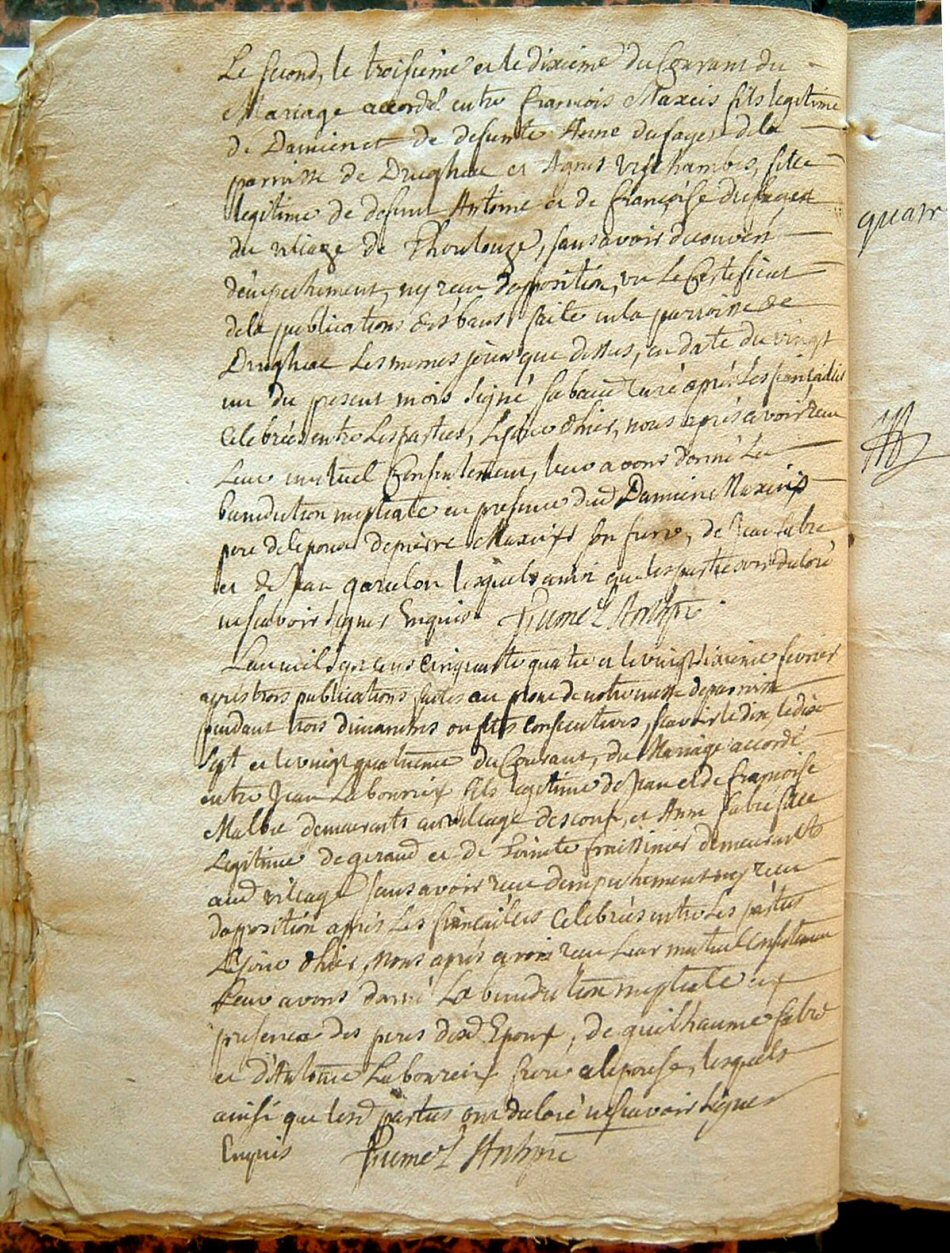 Le second, le troisieme et le dixieme du Courant du
Mariage accordé entre françois Maxcis fils legitime
de Damien et de defunte Anne dufayet de la
parroisse de Drughac et Agnes vischambes, fille
legitime de defunt Antoine et de françoise dufayet
du village de Thoulouze, sans avoir decouvert
d'empechement, ny receu d'opposition, vu Le Certificat
de la publications des bans faite en la parroisse de
Drughac Les memes jours que dessus, en date du vingt
un du present mois signé curé après Les fiançailles
Celebrées entre Les parties, Le jour d'hier, nous après avoir receu
Leur mutuel Consentement, leur avons donné La
benediction nuptiale en presence dud Damien Maxcis
pere de l'epoux de pierre Maxcis son frere, de Jean fabre
et de Jean garulou lesquels ainsi que les parties ont declaré
ne scavoir signer Enquis
L'an mil sept cens cinquante quatre et le vingt sixieme fevrier
après trois publications faites au prone de notre messe de parroisse
pendant trois dimanches ou fetes consecutives, scavoir le dix, le dix
sept et le vingt quatrieme du Courant, du Mariage accordé
entre Jean Labourcix fils legitime de Jean et de françoise
Malbu demeurants au village descouf, et Anne fabre fille
Legitime de geraud et de Tointe fraissinier demeurants
aud village sans avoir receu d'empechement ny receu
d'opposition après Les fiançailles Celebrées entre Les parties
Le jour d'hier, Nous après avoir receu Leur mutuel consentement
Leur avons donné La benediction nuptiale en
presence des peres desd Epoux, de guilhaume fabre
et d'Antoine Labourcix frere a l'epouse, lesquels
ainsi que lesd parties ont declaré ne scavoir signer
Enquis